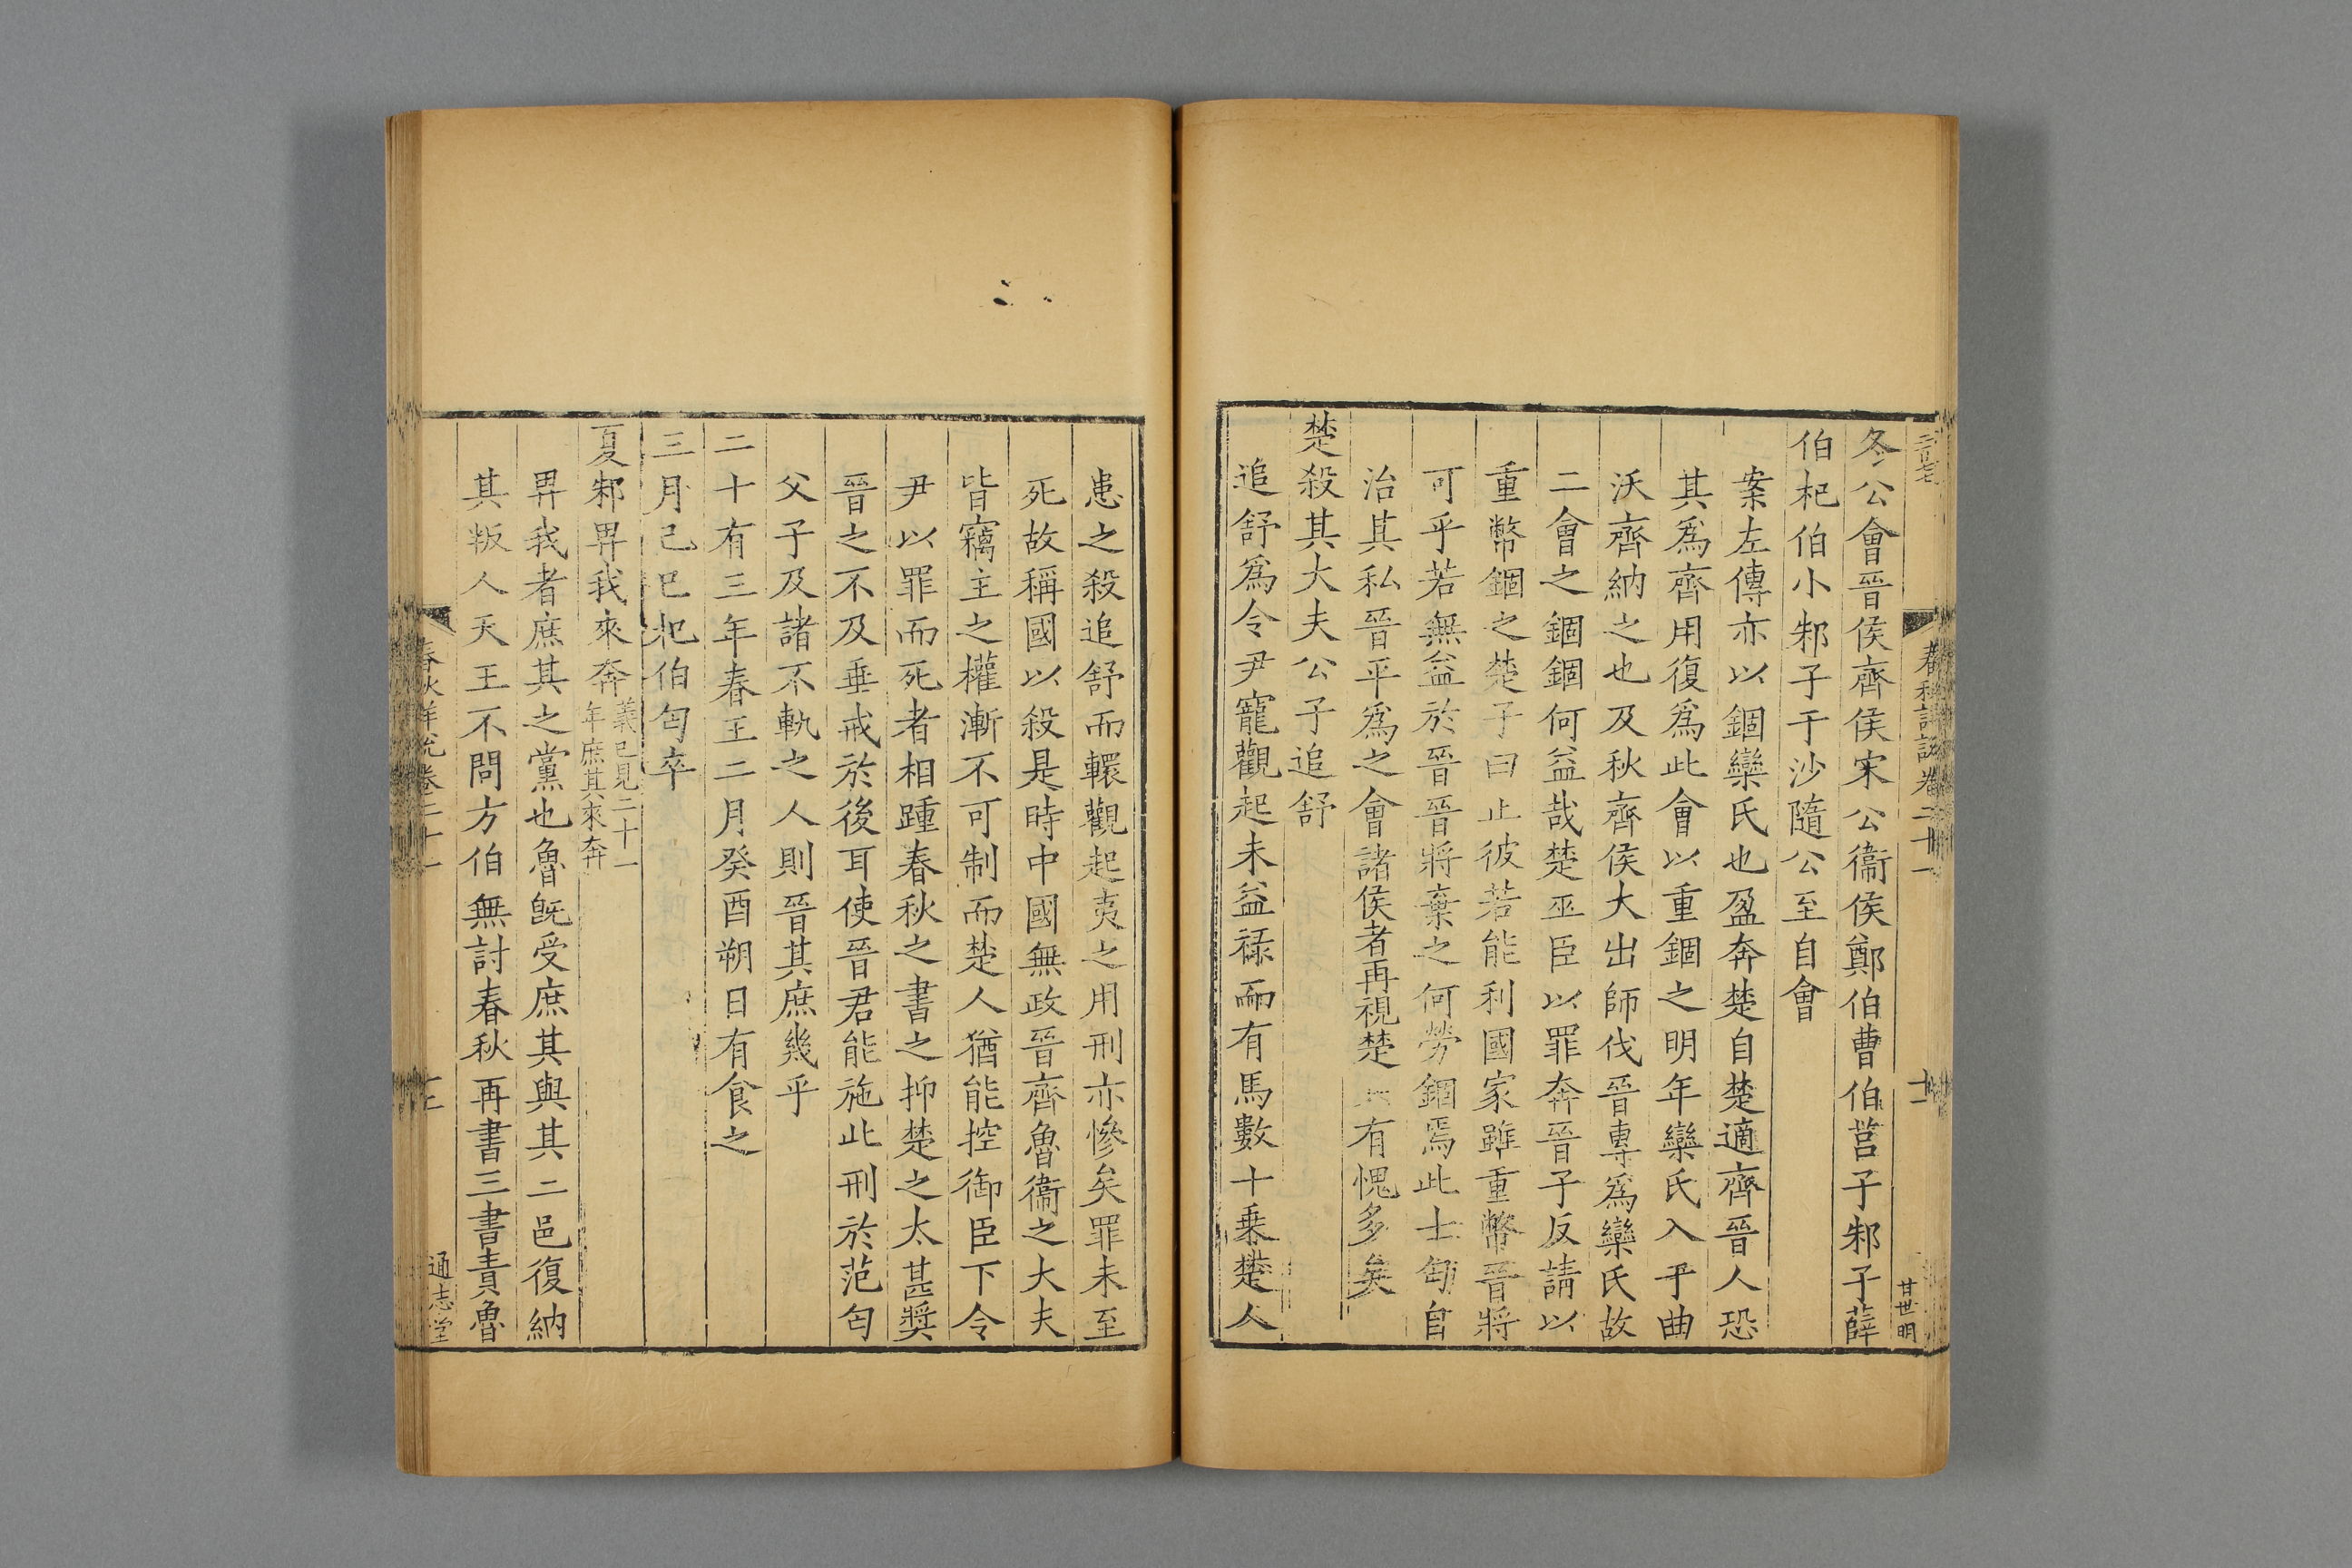 冬公會晉侯齊侯宋公衞侯鄭伯曹伯莒子邾子薛
伯杞伯小邾子于沙隨公至自會
案左傳亦以錮欒氏也盈奔楚自楚適齊晉人恐
其爲齊用復爲此會以重錮之明年欒氏入于曲
沃齊納之也及秋齊侯大出師伐晉專爲欒氏故
二會之錮錮何益哉楚巫臣以罪奔晉子反請以
重幣錮之楚子曰止彼若能利國家雖重幣晉將
可乎若無益於晉晉將棄之何勞錮焉此士匄自
治其私晉平爲之會諸侯者再視楚 有愧多矣
楚殺其大夫公子追舒
追舒爲令尹寵觀起未益祿而有馬數十乗楚人
甘世明
患之殺追舒而轘觀起夷之用刑亦慘矣罪未至
死故稱國以殺是時中國無政晉齊魯衞之大夫
皆竊主之權漸不可制而楚人猶能控御臣下令
尹以罪而死者相踵春秋之書之抑楚之太甚奬
晉之不及垂戒於後耳使晉君能施此刑於范匄
父子及諸不軌之人則晉其庶幾乎
二十有三年春王二月癸酉朔日有食之
三月己巳杞伯匄卒
夏邾畀我來奔
義已見二十一
年庶其來奔
畀我者庶其之黨也魯旣受庶其與其二邑復納
其叛人天王不問方伯無討春秋再書三書責魯
春秋詳說卷二十一
通志堂